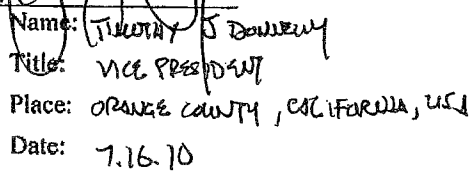 Name: TIMOTHY J DONNELLY
Title: VICE PRESIDENT
Place: ORANGE COUNTY, CALIFORNIA, USA
Date: 7.16.10